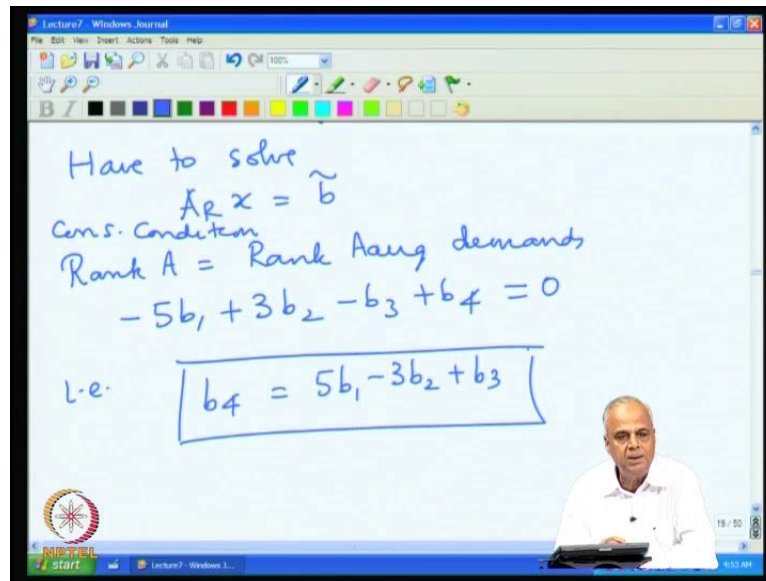 Lecture7 - Windows Journal
File Edit View Insert Actions Tools Help
100%
B I
Have to solve
A_R x = b̃
Cons. Condition
Rank A = Rank Aaug demands
- 5b₁ + 3b₂ - b₃ + b₄ = 0
i.e. b₄ = 5b₁ - 3b₂ + b₃
19 / 50
NPTEL
start Lecture7 - Windows J... 4:53 AM